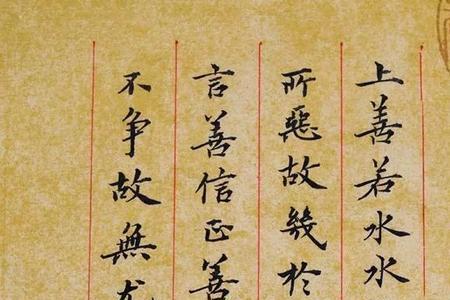 上善若水水
所惡故幾於
言善信正善
不争故無尤